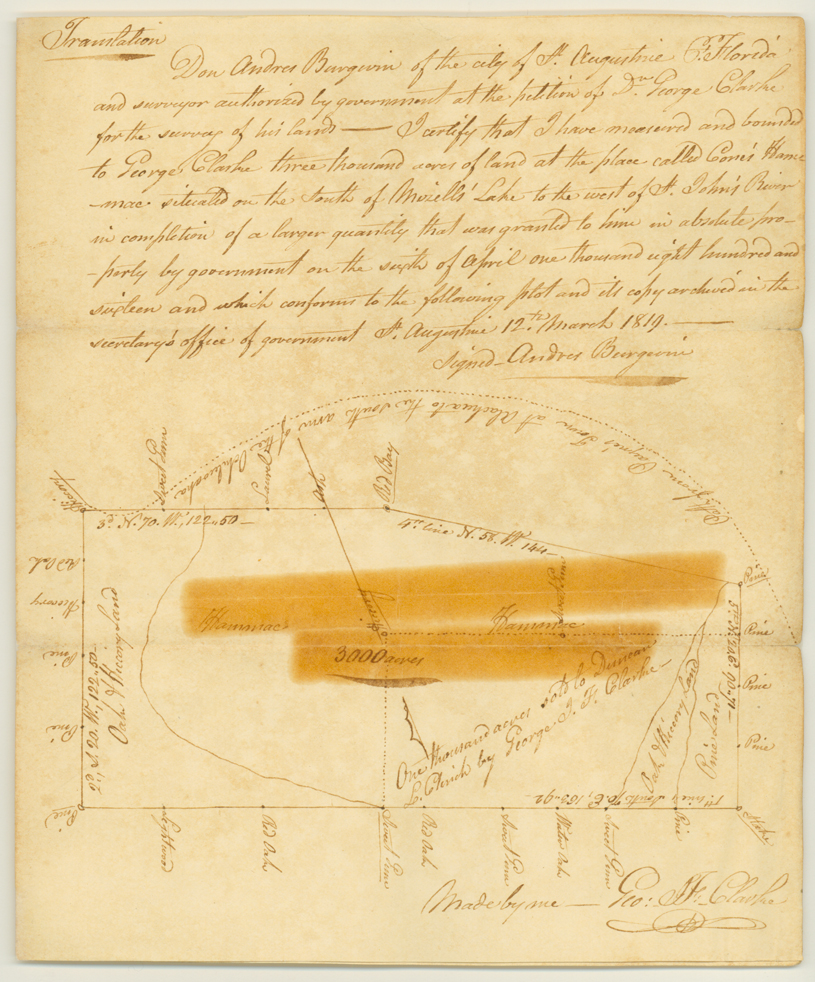 Translation
Don Andres Burgevin of the city of St. Augustine E. Florida
and surveyor authorized by government at the petition of Dn. George Clarke
for the survey of his lands — I certify that I have measured and bounded
to George Clarke three thousand acres of land at the place called Cone's Ham
-mac situated on the South of Mizell's Lake to the west of St. John's River
in completion of a larger quantity that was granted to him in absolute pro-
-perty by government on the sixth of April one thousand eight hundred and
sixteen and which conforms to the following plot and its copy archived in the
secretary's office of government St. Augustine 12th March 1819. —
Signed — Andres Burgevin
Payne's Town at Alachua to the south arm of the Ocklawaha
Hicory
Sweet Gum
Hicory
Ash
Red Bay
3d. N. 70. W., 122"50 —
4th line N. 58. W. 144 —
Red Oak
Hicory
Pine
Pine
Pine
Oak & Hicory Land
Hammac
Hicory
Hammac
Sweet Gum
3000 acres
One thousand acres sold to Duncan
L. Clinch by George J. F. Clarke —
Oak & Hicory Land
Pine Land
Pine
Pine
Pine
Pine
Stake
Lightwood
Red Oak
Sweet Gum
Red Oak
Sweet Gum
Water Oak
Sweet Gum
Pine
Made by me — Geo: J. F. Clarke